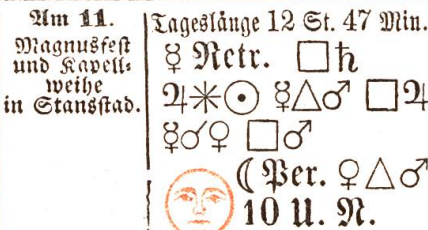 Am 11.
Magnusfest
und Kapell-
weihe
in Stansstad.
Tageslänge 12 St. 47 Min.
☿ Retr. □♄
♃⚹☉ ☿△♂ □♃
☿☌♀ □♂
☾ Per. ♀△♂
10 U. N.